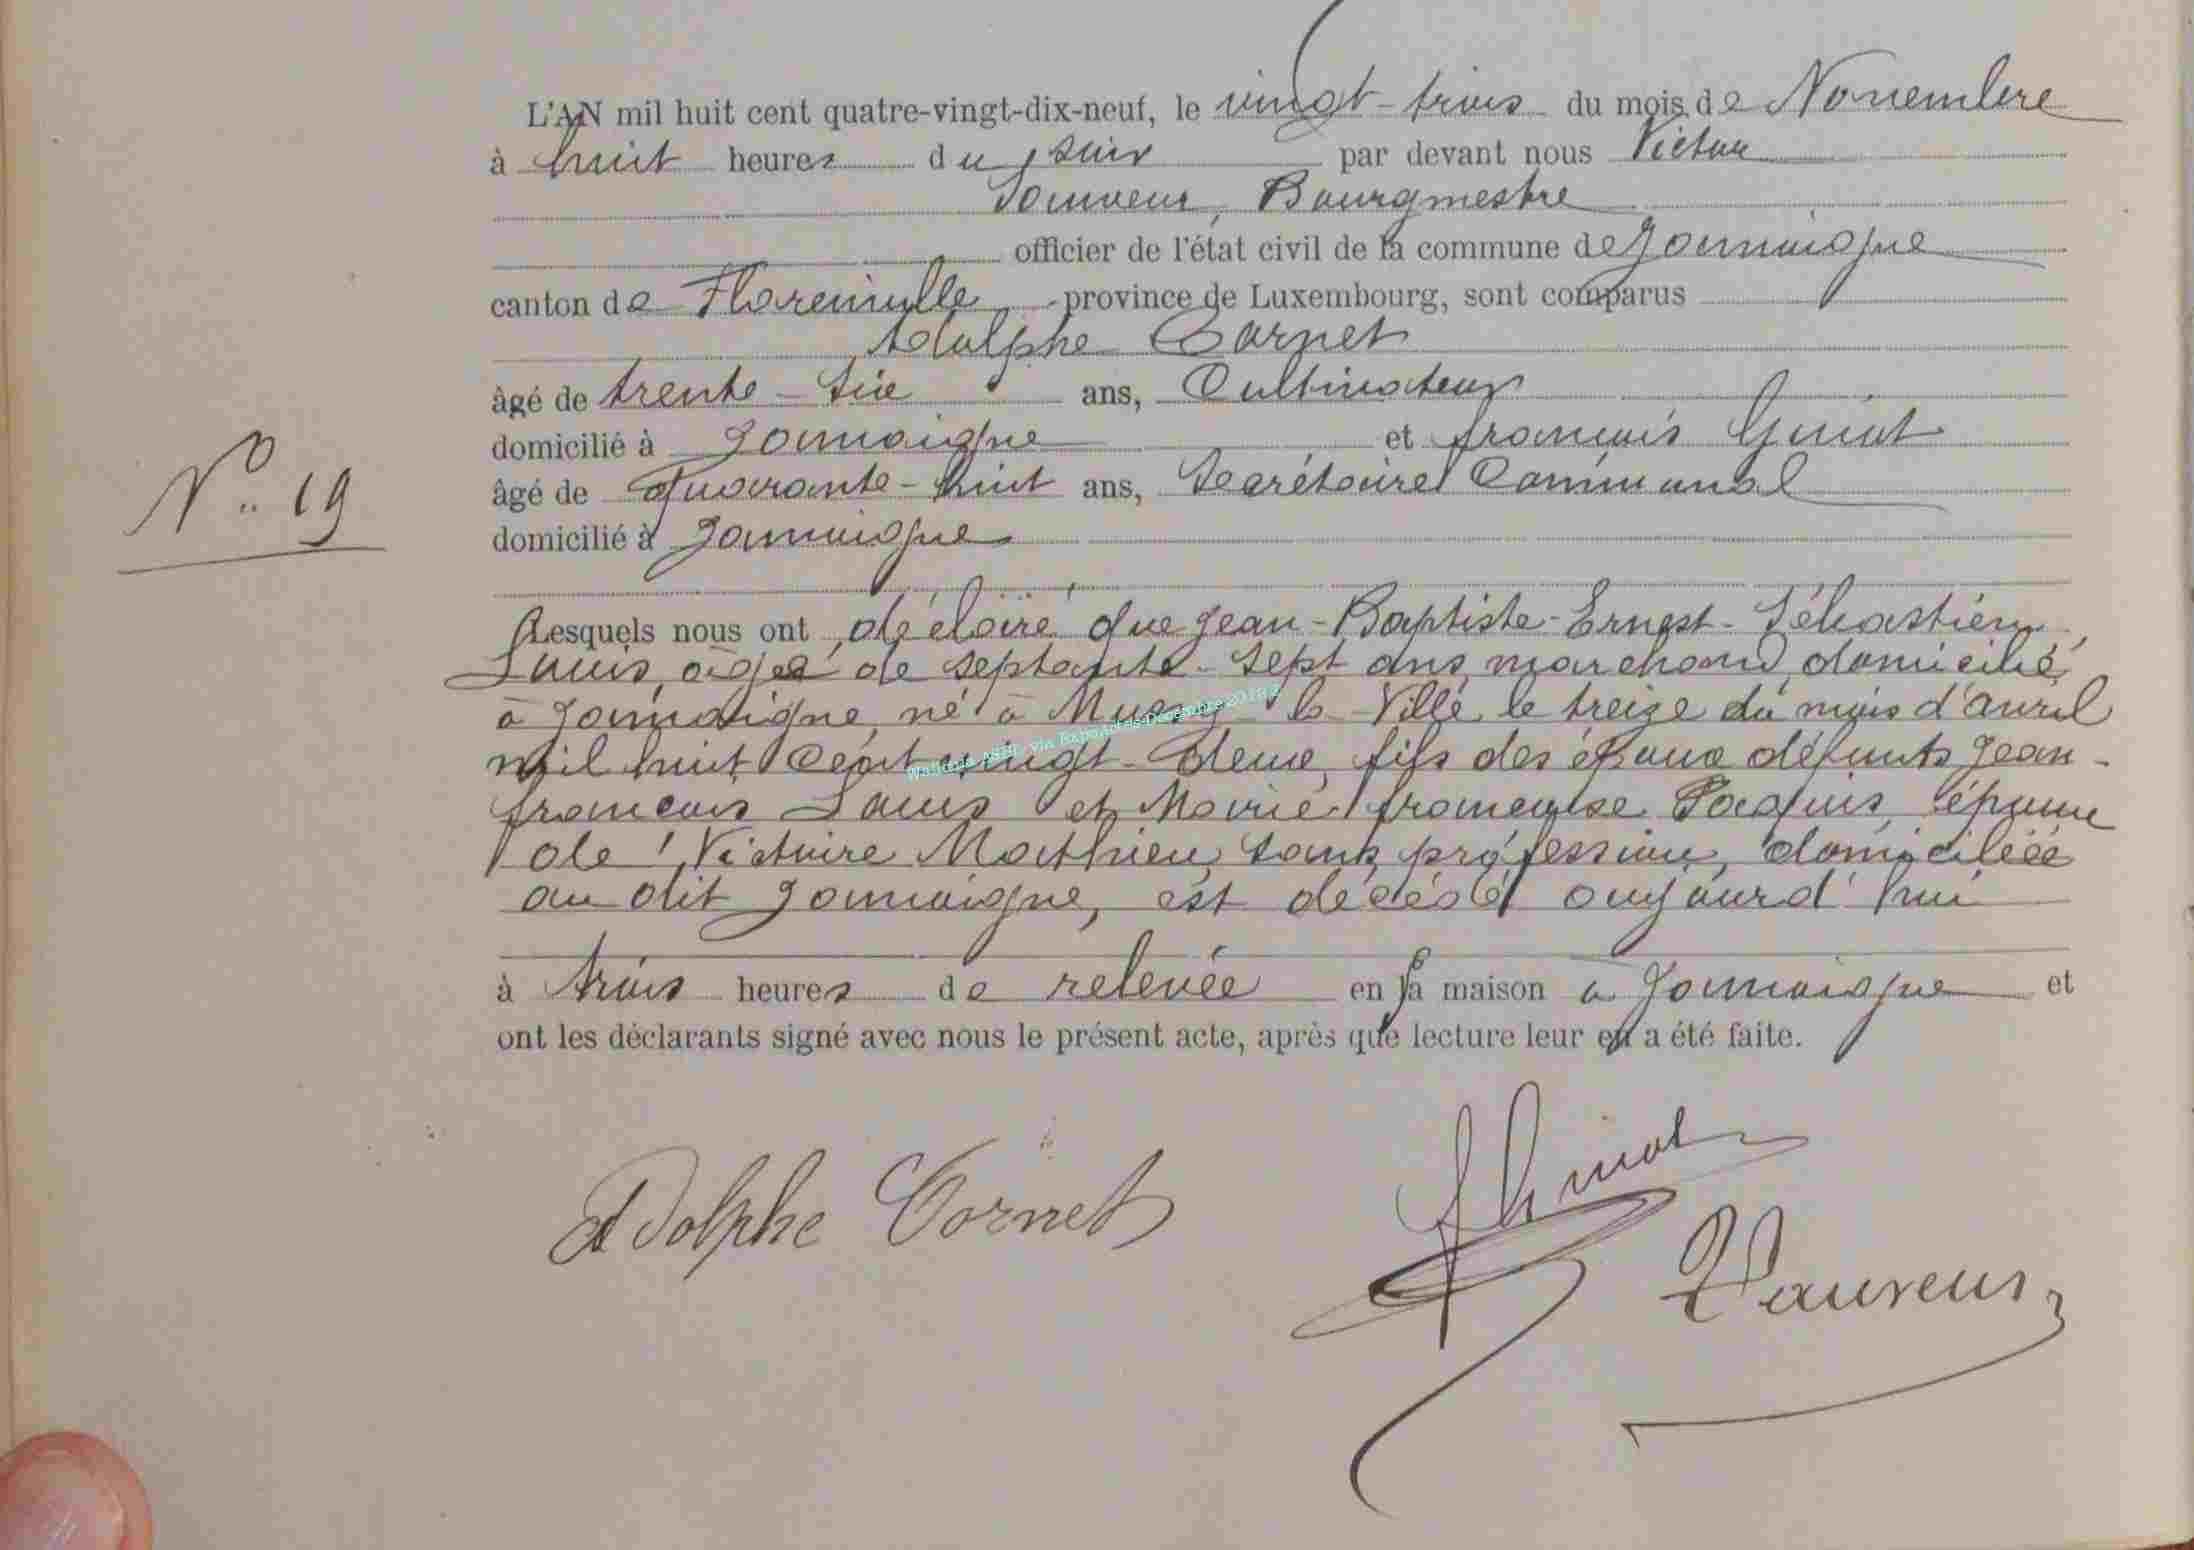 L'AN mil huit cent quatre-vingt-dix-neuf, le vingt-trois du mois de Novembre
à huit heures du soir par devant nous Victor
Sauveur, Bourgmestre
officier de l'état civil de la commune de Jamoigne
canton de Florenville province de Luxembourg, sont comparus
Adolphe Cornet
âgé de trente-six ans, Cultivateur
domicilié à Jamoigne et françois Guiot
N° 19
âgé de quarante-huit ans, Secrétaire Communal
domicilié à Jamoigne
Lesquels nous ont déclaré que Jean-Baptiste-Ernest-Sébastien
Louis, âgé de septante-sept ans, marchand, domicilié
à Jamoigne, né à Mussy la Ville le treize du mois d'avril
mil huit cent vingt-deux, fils des époux défunts Jean-
françois Louis et Marie françoise Paquis, époux
de Victoire Mathieu, sans profession, domiciliée
au dit Jamoigne, est décédé aujourd'hui
à trois heures de relevée en sa maison à Jamoigne et
ont les déclarants signé avec nous le présent acte, après que lecture leur en a été faite.
Adolphe Cornet
Sauveur